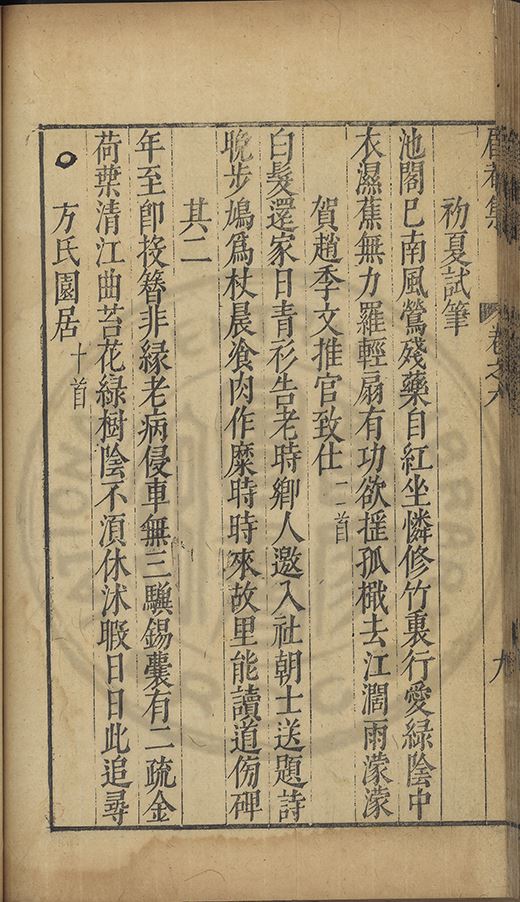 眉菴集 卷之六 九
初夏試筆
池閣已南風鶯殘藥自紅坐憐修竹裏行愛綠陰中
衣濕蕉無力羅輕扇有功欲搖孤檝去江濶雨濛濛
賀趙季文推官致仕二首
白髮還家日青衫告老時鄉人邀入社朝士送題詩
晚步鳩爲杖晨飡肉作糜時時來故里能讀道傍碑
其二
年至即投簪非緣老病侵車無三驥錫囊有二疏金
荷葉清江曲苔花綠樹陰不須休沐暇日日此追尋
方氏園居十首